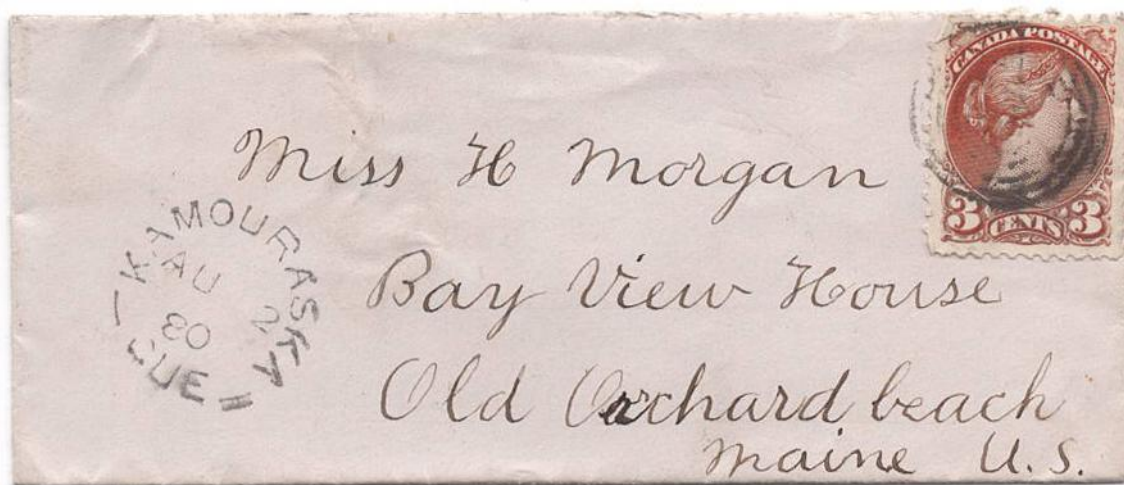 CANADA POSTAGE
3 CENTS 3
Miss H Morgan
Bay View House
Old Orchard beach
Maine U.S.
KAMOURASKA
AU 2
80
QUE